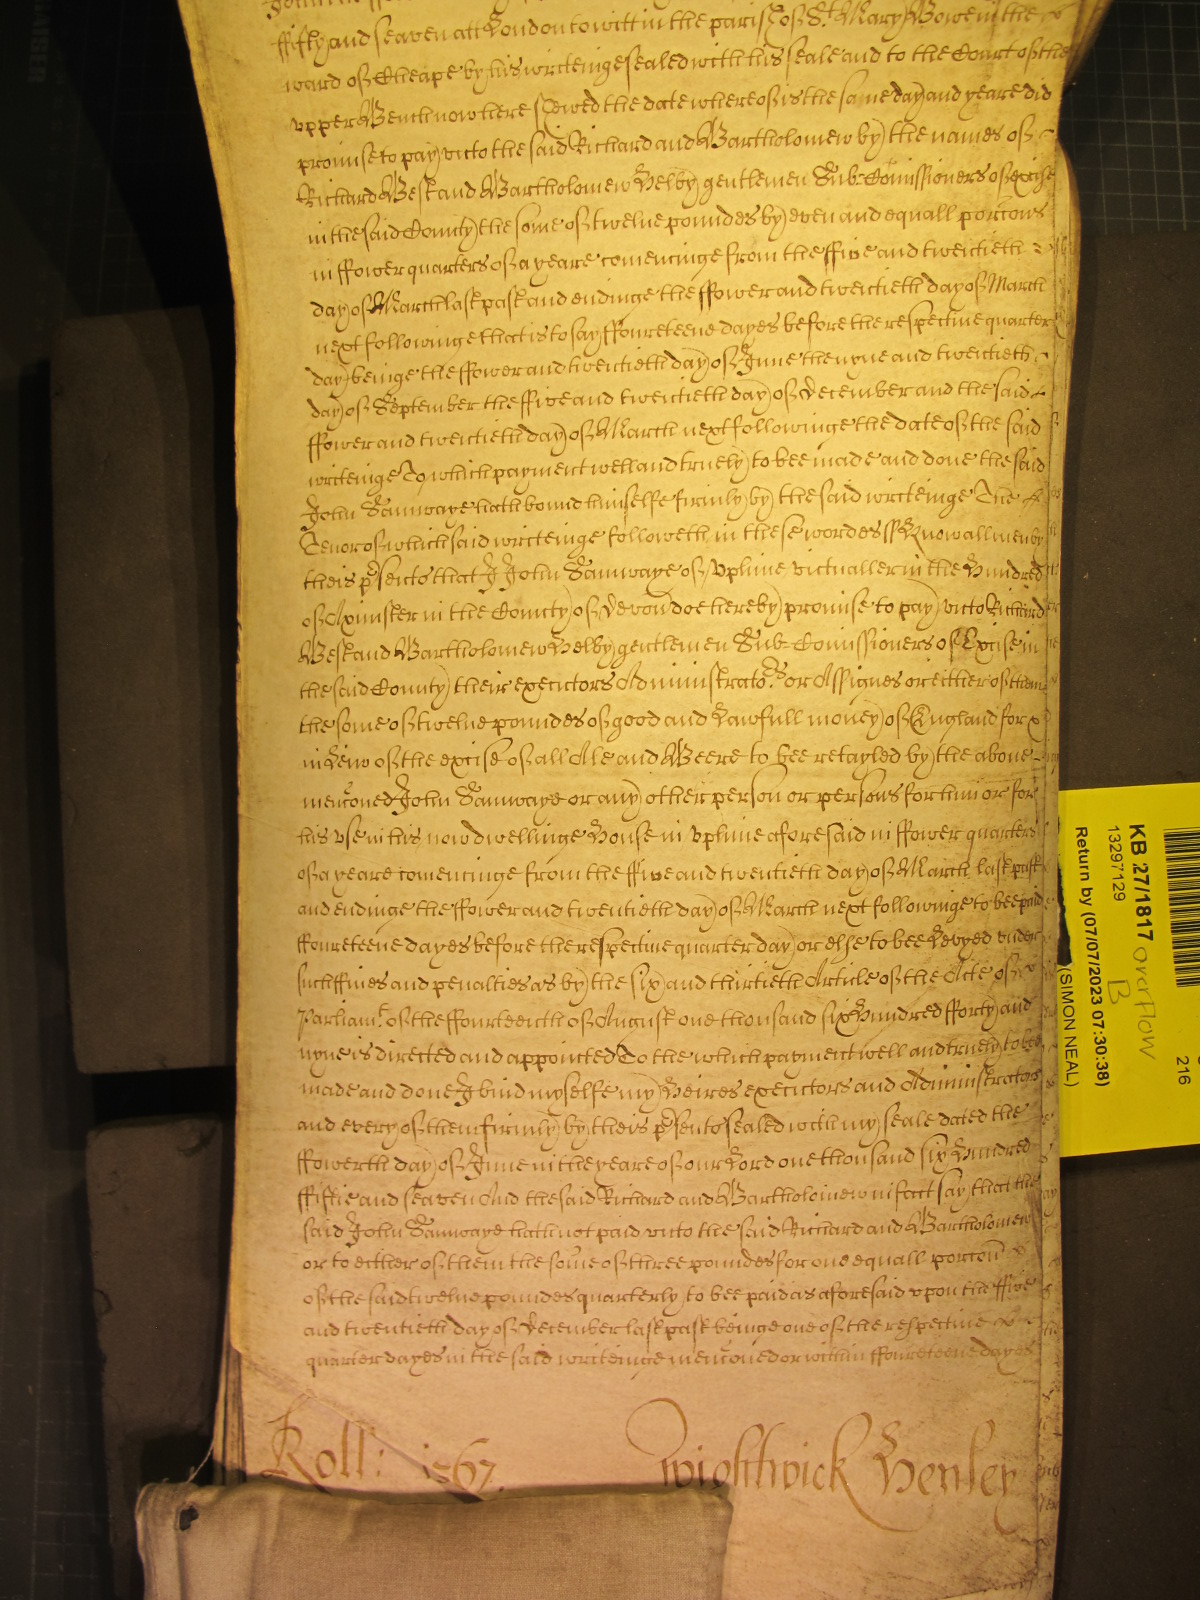 ffifty and seaven att London to witt in the parish of St. Mary Bowe in the
ward of Cheape by his writeinge sealed with his seale and to the Court of the
upper Bench now here shewed the date whereof is the same day and yeare did
promise to pay unto the said Richard and Bartholomew by the names of
Richard West and Bartholomew Helby gentlemen Sub-Comissioners of excise
in the said County the some of twelve poundes by even and equall porcons
in ffower quarters of a yeare comencinge from the ffive and twentieth
day of March last past and endinge the ffower and twentieth day of March
next followinge that is to say ffoureteene dayes before the respective quarter
day beinge the ffower and twentieth day of June the nyne and twentieth
day of September the ffive and twentieth day of December and the said
ffower and twentieth day of March next followinge the date of the said
writeinge To which payment well and truely to bee made and done the said
John Samwaye hath bound himselfe firmly by the said writeinge The
Tenor of which said writeinge followeth in these wordes ss Know all men by
theis psents that I John Samwaye of Uplime victualler in the Hundred
of Axmister in the County of Devon doe hereby promise to pay unto Richard
West and Bartholomew Helby gentlemen Sub-Comissioners of Excise in
the said County their executors Administrators or Assignes or either of them
the some of twelve poundes of good and Lawfull money of England for x
in Liew of the excise of all Ale and Beere to bee retayled by the above
menconed John Samwaye or any other person or persons for him or for
his use in his now dwellinge House in Uplime aforesaid in ffower quarters
of a yeare comencinge from the ffive and twentieth day of March last past
and endinge the ffower and twentieth day of March next followinge to bee paid
ffoureteene dayes before the respective quarter day or else to bee Levyed under
such ffines and penalties as by the six and thirtieth Article of the Acte of
Parliamt. of the ffourteenth of August one thousand six Hundred fforty and
nyne is directed and appointed To the which payment well and truely to bee
made and done I bind my selfe my Heires executors and Administrators
and every of them firmly by theis psents sealed with my seale dated the
ffowerth day of June in the yeare of our Lord one thousand six Hundred
ffiftie and seaven And the said Richard and Bartholomew in fact say that the
said John Samwaye hath not paid unto the said Richard and Bartholomew
or to either of them the some of three poundes for one equall porcon
of the said twelve poundes quarterly to bee paid as aforesaid upon the ffive
and twentieth day of December last past beinge one of the respective
quarter dayes in the said writeinge menconed or within ffoureteene dayes
Roll: 1567. Wightwick Henley
KB 27/1817 overflow
B
13297129
216
Return by (07/07/2023 07:30:38)
(SIMON NEAL)